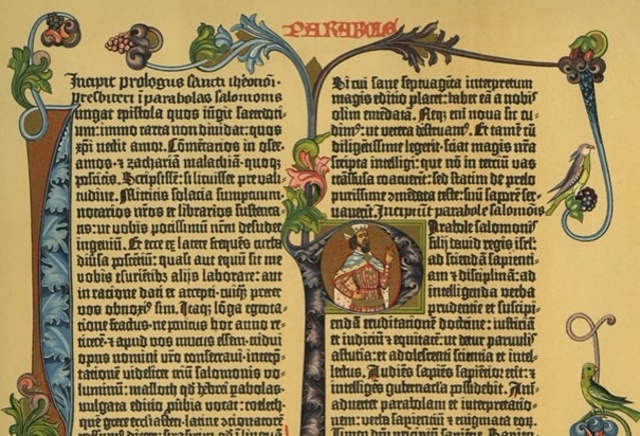 PARABOLE
Incipit prologus sancti iheronimi
presbiteri i parabolas salomonis
iungat epistola quos iugit sacerdoti-
um: immo carta non dividat: quos
xpi nectit amor. Cōmētarios in osee.
amos. et zachariā malachiā. quoq;
poscitis. Scripsisse: si licuisset pre vali-
tudine. Mittitis solacia sumptuum.
notarios nr̄os et librarios sustenta-
tis: ut vobis potissimū nr̄m desudet
ingeniū. Et ecce ex latere frequēs turba
diūsa poscētiū: quasi aut equū sit me
vobis esurietibz alijs laborare: aut
in ratione dati et accepti. cuiq; preter
vos obnoxi9 sim. Itaq; lōga egrota-
tione fractus. ne penitus hoc anno re-
ticerē. et apud vos mutus essem. tridui
opus nomini vr̄o consecravi. interp-
tationē videlicet triū salomonis vo-
luminū: masloth qd hebrei pabolas.
vulgata editio pūbia vocat: coeleth.
quē grece ecclīasten. latine ōcionatorē
Si cui sane septuagīta interpretum
magis editio placet: habet eā a nobis
olim emēdatā. Neq; eni nova sic cu-
dim9: ut vetera destruam9. Et tamē cū
diligētissime legerit. sciat magis nr̄a
scripta intelligi: que nō in terciū vas
trāsfusa coacuerīt: sed statim de prelo
purissime ōmēdata teste: suū saporē ser-
vaverīt. Incipiūt parabole salomōis
Parabole salomonis
filij david regis isrl:
ad sciendā sapienti-
am et disciplinā: ad
intelligenda verba
prudentie et suscipi-
endā eruditationē doctrine: iusticiā
et iudiciū et equitatē: ut detur parvulis
astutia: et adolescenti sciencia et intel-
lectus. Audiēs sapiēs sapiētior erit: et
intelligēs gubernacla possidebit. Ani-
advertet parabolam et interpretatio-
nem: verba sapientiū et enigmata eor̄.